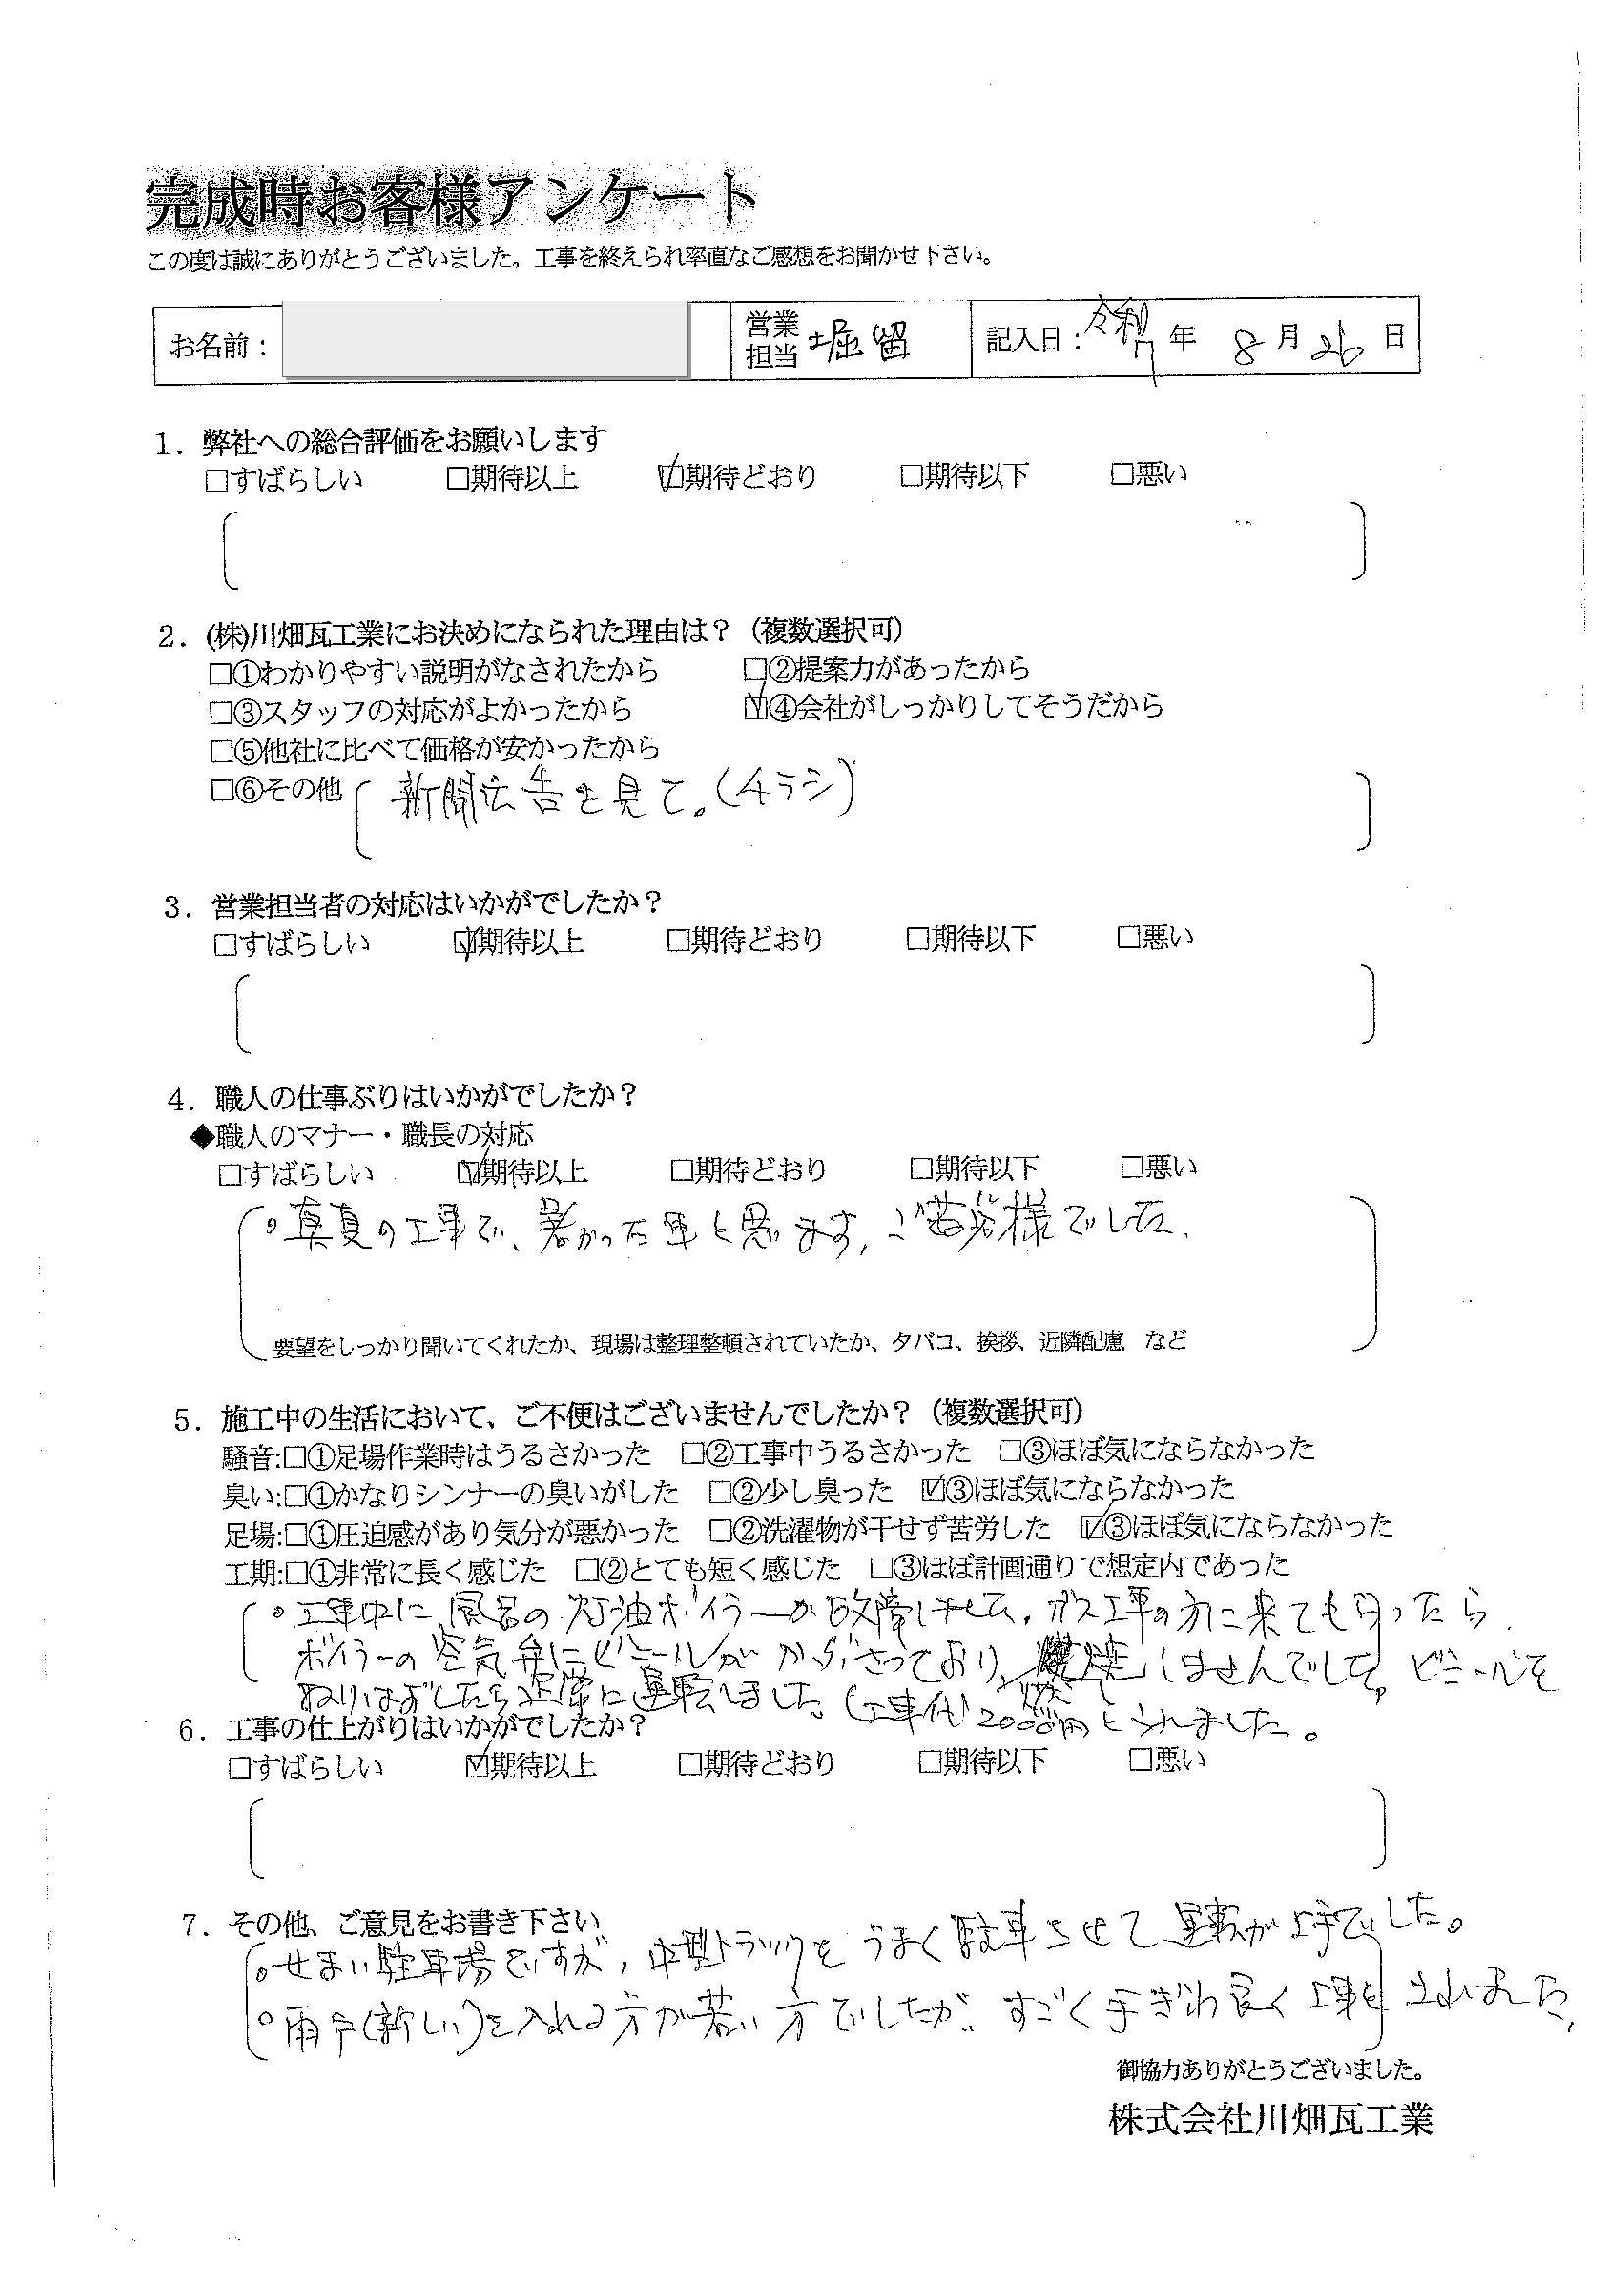 完成時お客様アンケート
この度は誠にありがとうございました。工事を終えられ率直なご感想をお聞かせ下さい。
お名前： 営業担当 堀留 記入日：令和7年 8月26日
1．弊社への総合評価をお願いします
□すばらしい □期待以上 ☑期待どおり □期待以下 □悪い
2．(株)川畑瓦工業にお決めになられた理由は？（複数選択可）
□①わかりやすい説明がなされたから □②提案力があったから
□③スタッフの対応がよかったから ☑④会社がしっかりしてそうだから
□⑤他社に比べて価格が安かったから
□⑥その他 新聞広告を見て。(チラシ)
3．営業担当者の対応はいかがでしたか？
□すばらしい ☑期待以上 □期待どおり □期待以下 □悪い
4．職人の仕事ぶりはいかがでしたか？
◆職人のマナー・職長の対応
□すばらしい ☑期待以上 □期待どおり □期待以下 □悪い
。真夏の工事で、暑かった事と思います，ご苦労様でした．
要望をしっかり聞いてくれたか、現場は整理整頓されていたか、タバコ、挨拶、近隣配慮 など
5．施工中の生活において、ご不便はございませんでしたか？（複数選択可）
騒音:□①足場作業時はうるさかった □②工事中うるさかった □③ほぼ気にならなかった
臭い:□①かなりシンナーの臭いがした □②少し臭った ☑③ほぼ気にならなかった
足場:□①圧迫感があり気分が悪かった □②洗濯物が干せず苦労した ☑③ほぼ気にならなかった
工期:□①非常に長く感じた □②とても短く感じた □③ほぼ計画通りで想定内であった
。工事中に、風呂の灯油ボイラーが故障しまして，ガス工事の方に来てもらったら
ボイラーの空気弁にビニールがかぶさっており、燃焼しませんでして，ビニールを
とりはずしたら正常に運転しました。(工事代)2000円とられました。
6．工事の仕上がりはいかがでしたか？
□すばらしい ☑期待以上 □期待どおり □期待以下 □悪い
7．その他、ご意見をお書き下さい
。せまい駐車場ですが，中型トラックをうまく駐車させて運転が上手でした。
。雨戸(新しい)を入れる方が若い方でしたが、すごく手ぎわ良く工事をされました，
御協力ありがとうございました。
株式会社川畑瓦工業